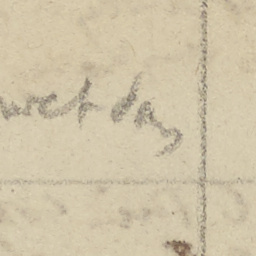 wet day